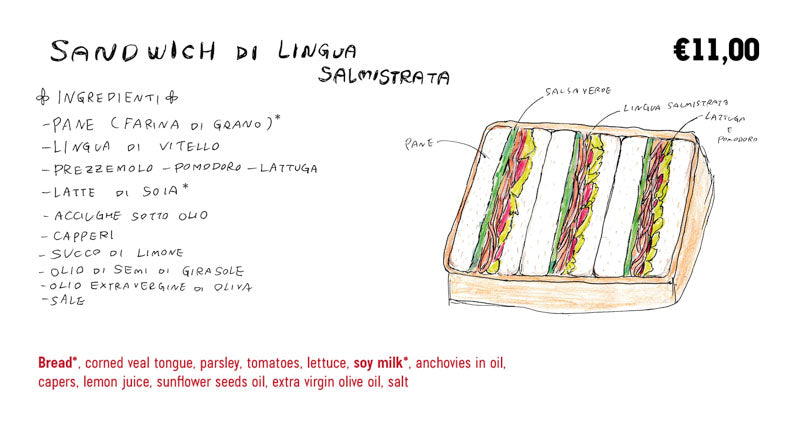 SANDWICH DI LINGUA
SALMISTRATA
€11,00
INGREDIENTI
- PANE (FARINA DI GRANO)*
- LINGUA DI VITELLO
- PREZZEMOLO - POMODORO - LATTUGA
- LATTE DI SOIA*
- ACCIUGHE SOTTO OLIO
- CAPPERI
- SUCCO DI LIMONE
- OLIO DI SEMI DI GIRASOLE
- OLIO EXTRAVERGINE DI OLIVA
- SALE
PANE
SALSA VERDE
LINGUA SALMISTRATA
LATTUGA
E
POMODORO
Bread*, corned veal tongue, parsley, tomatoes, lettuce, soy milk*, anchovies in oil,
capers, lemon juice, sunflower seeds oil, extra virgin olive oil, salt